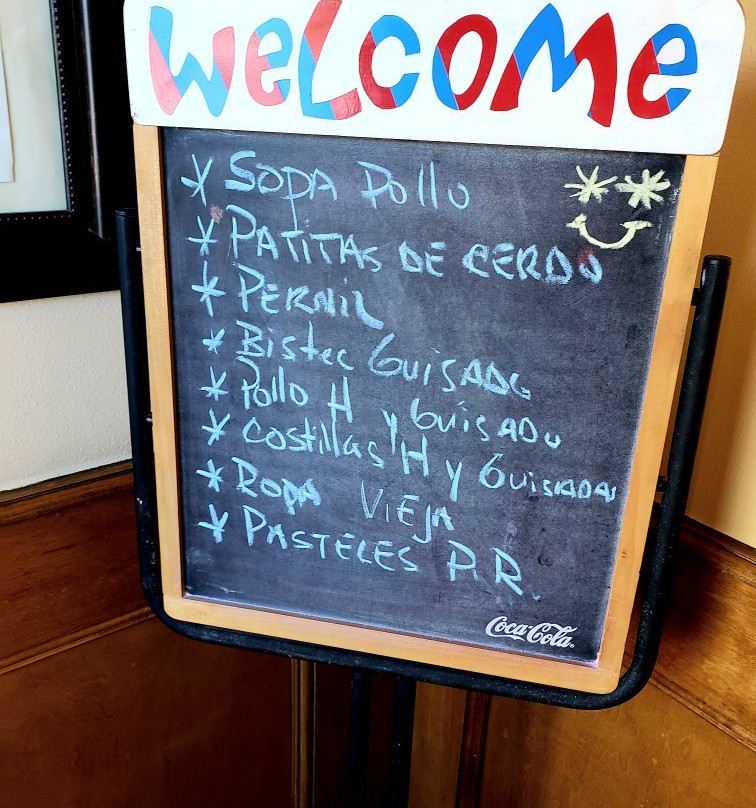 WeLcome
* SOPA Pollo
* PATITAS DE CERDO
* PERNIL
* Bistec GuisADO
* Pollo H y GuisADO
* Costillas H y GuisADAS
* ROPA VIEJA
* PASTELES P.R.
Coca-Cola